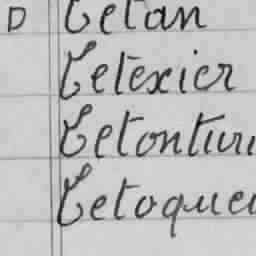 D Letan
Letexier
Letontur
Letoque